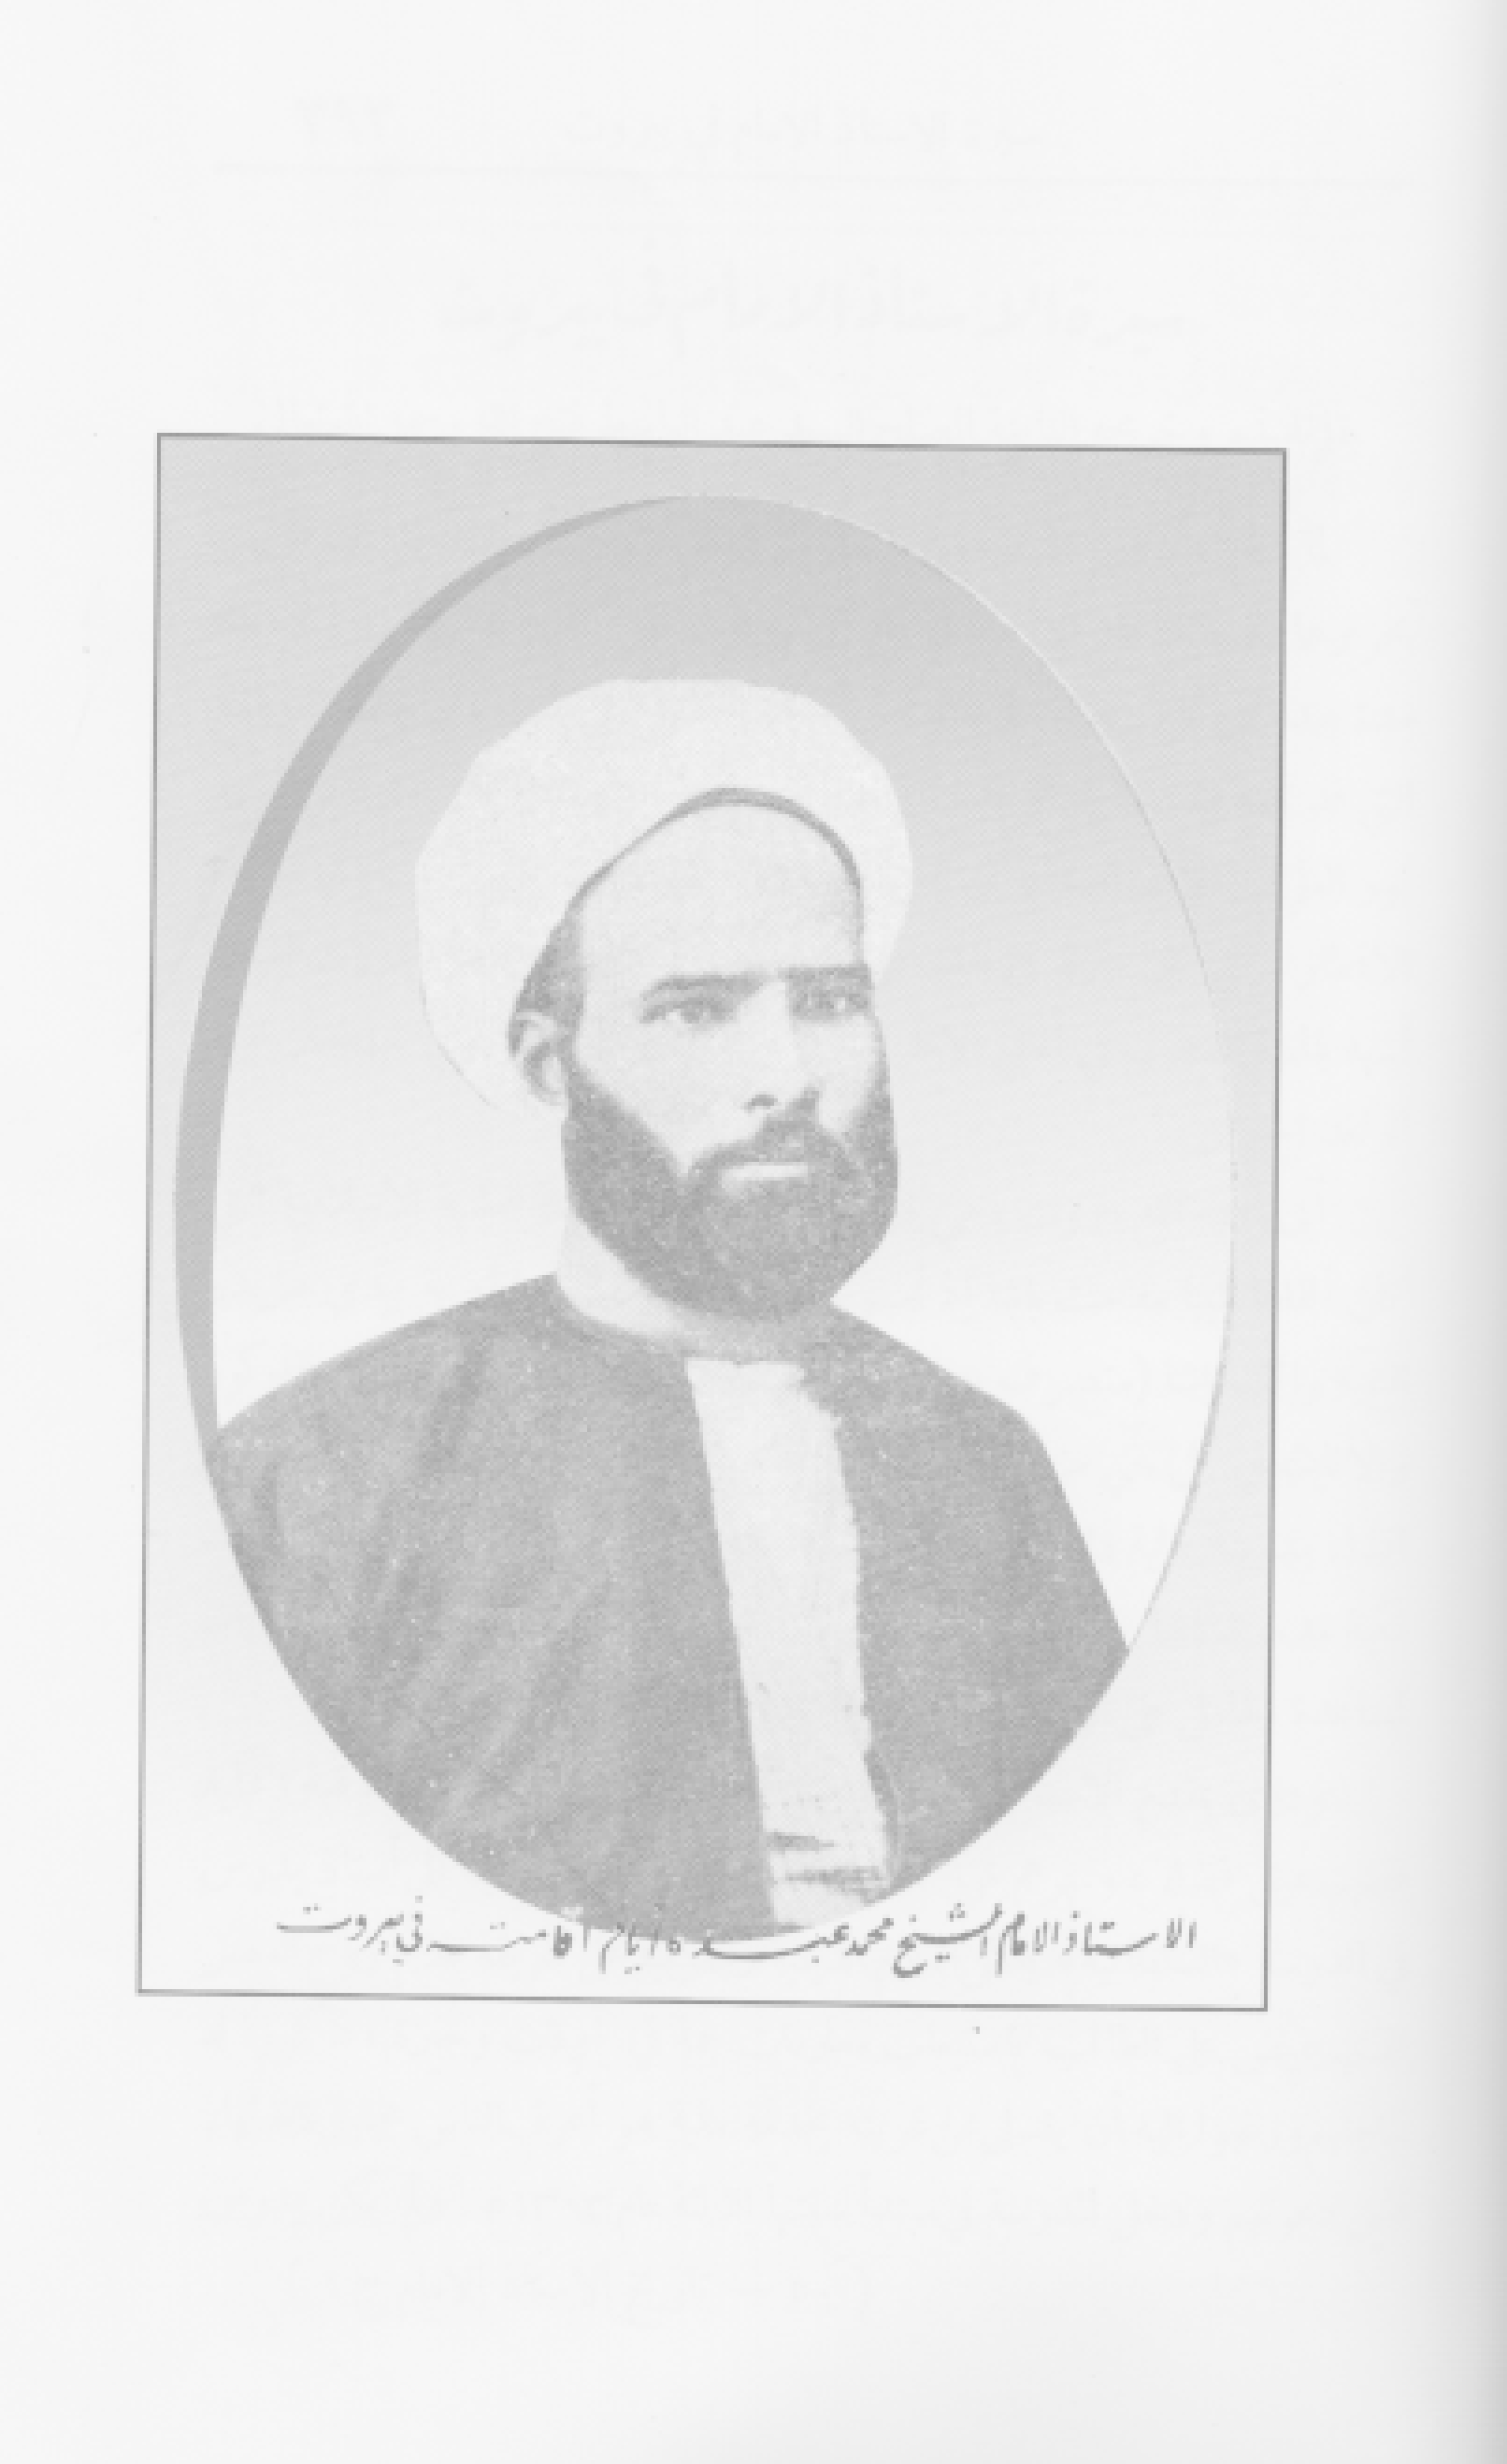 الاستاذ الامام الشيخ محمد عبده أيام اقامته في بيروت